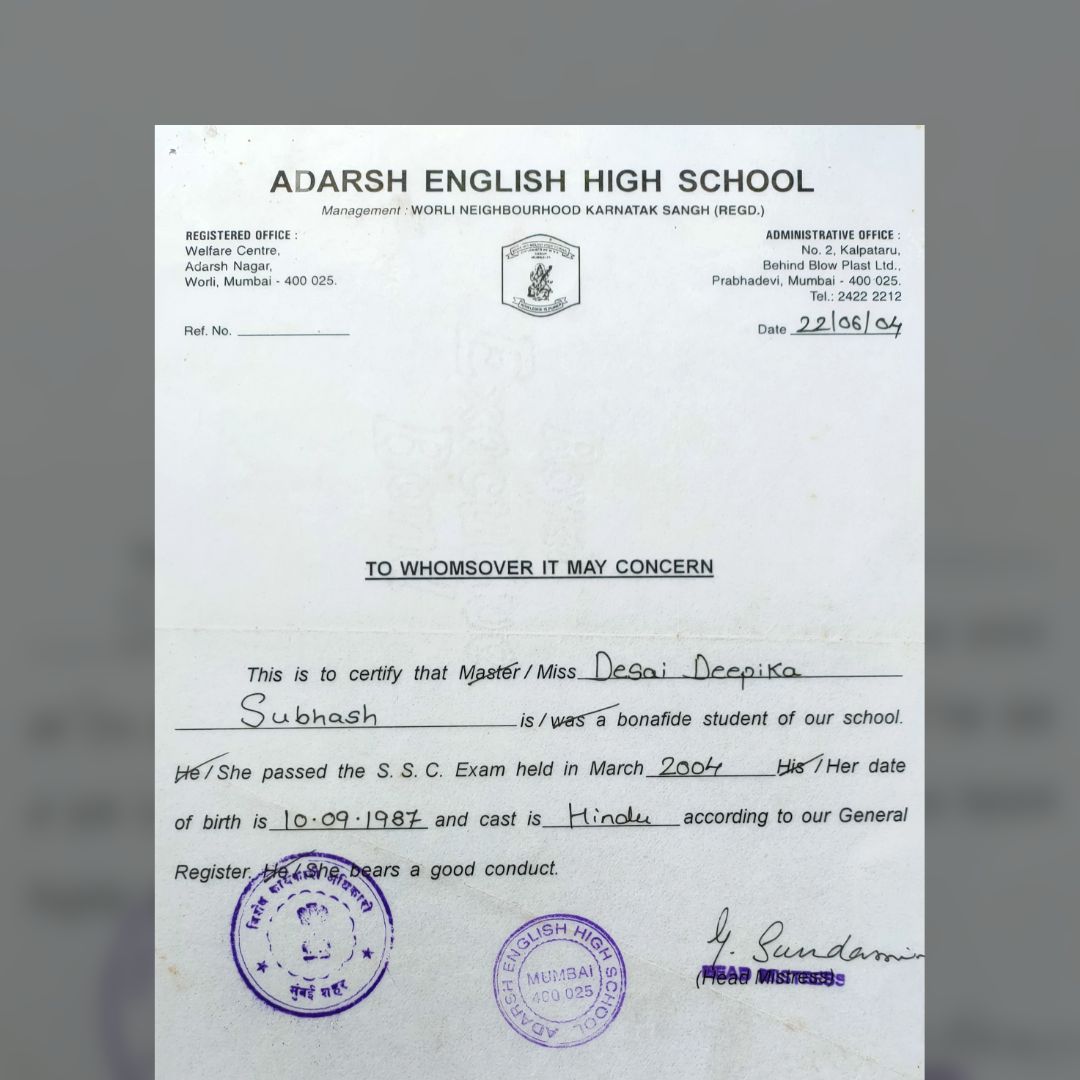 ADARSH ENGLISH HIGH SCHOOL
Management : WORLI NEIGHBOURHOOD KARNATAK SANGH (REGD.)
REGISTERED OFFICE :
Welfare Centre,
Adarsh Nagar,
Worli, Mumbai - 400 025.
ADMINISTRATIVE OFFICE :
No. 2, Kalpataru,
Behind Blow Plast Ltd.,
Prabhadevi, Mumbai - 400 025.
Tel.: 2422 2212
Ref. No.
Date 22/06/04
TO WHOMSOVER IT MAY CONCERN
This is to certify that Master / Miss Desai Deepika
Subhash is / was a bonafide student of our school.
He / She passed the S. S. C. Exam held in March 2004 His / Her date
of birth is 10.09.1987 and cast is Hindu according to our General
Register. He / She bears a good conduct.
विशेष कार्यकारी अधिकारी
मुंबई शहर
ADARSH ENGLISH HIGH SCHOOL
MUMBAI
400 025
HEAD MISTRESS
(Head Mistress)